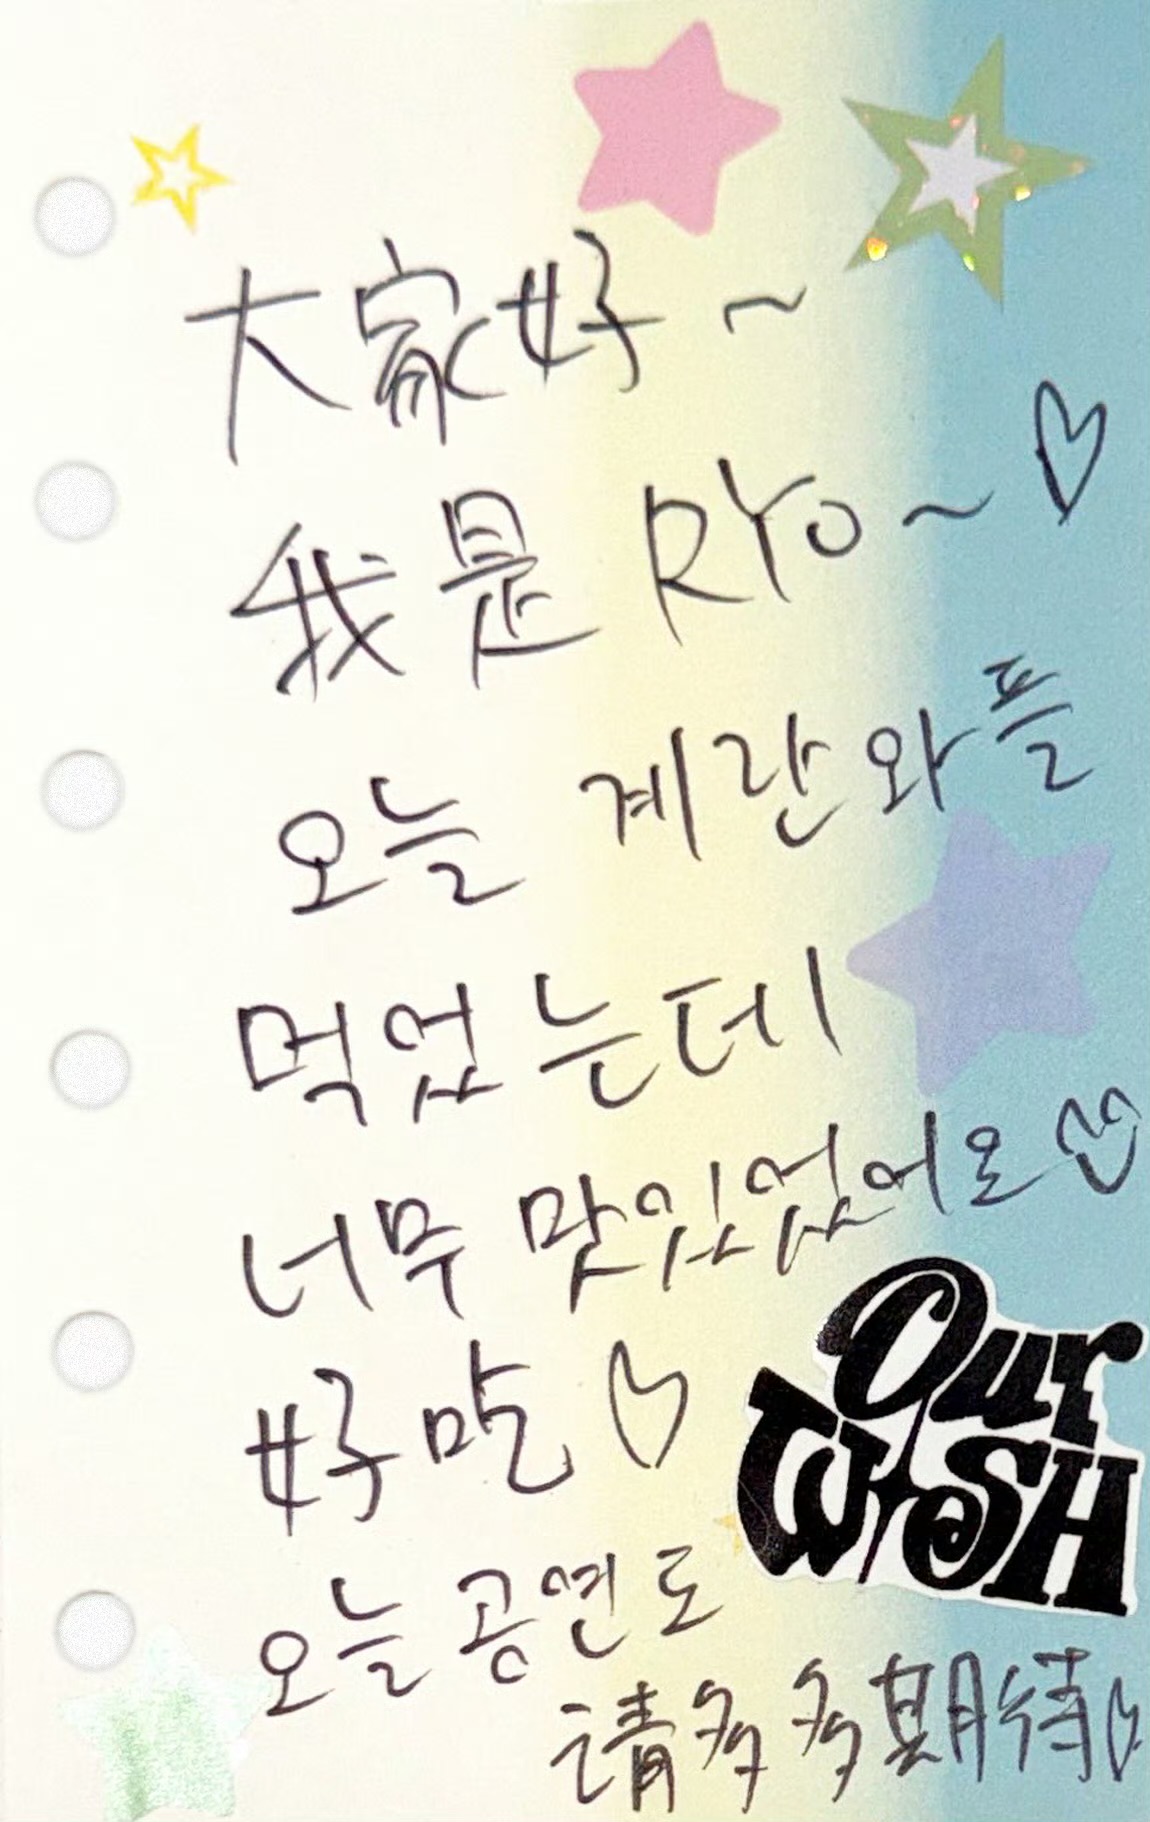 大家好~
我是 RYO~♡
오늘 계란와플
먹었는데
너무 맛있었어요♡
好맛♡
Our
WISH
오늘 공연도
請多多期待♡